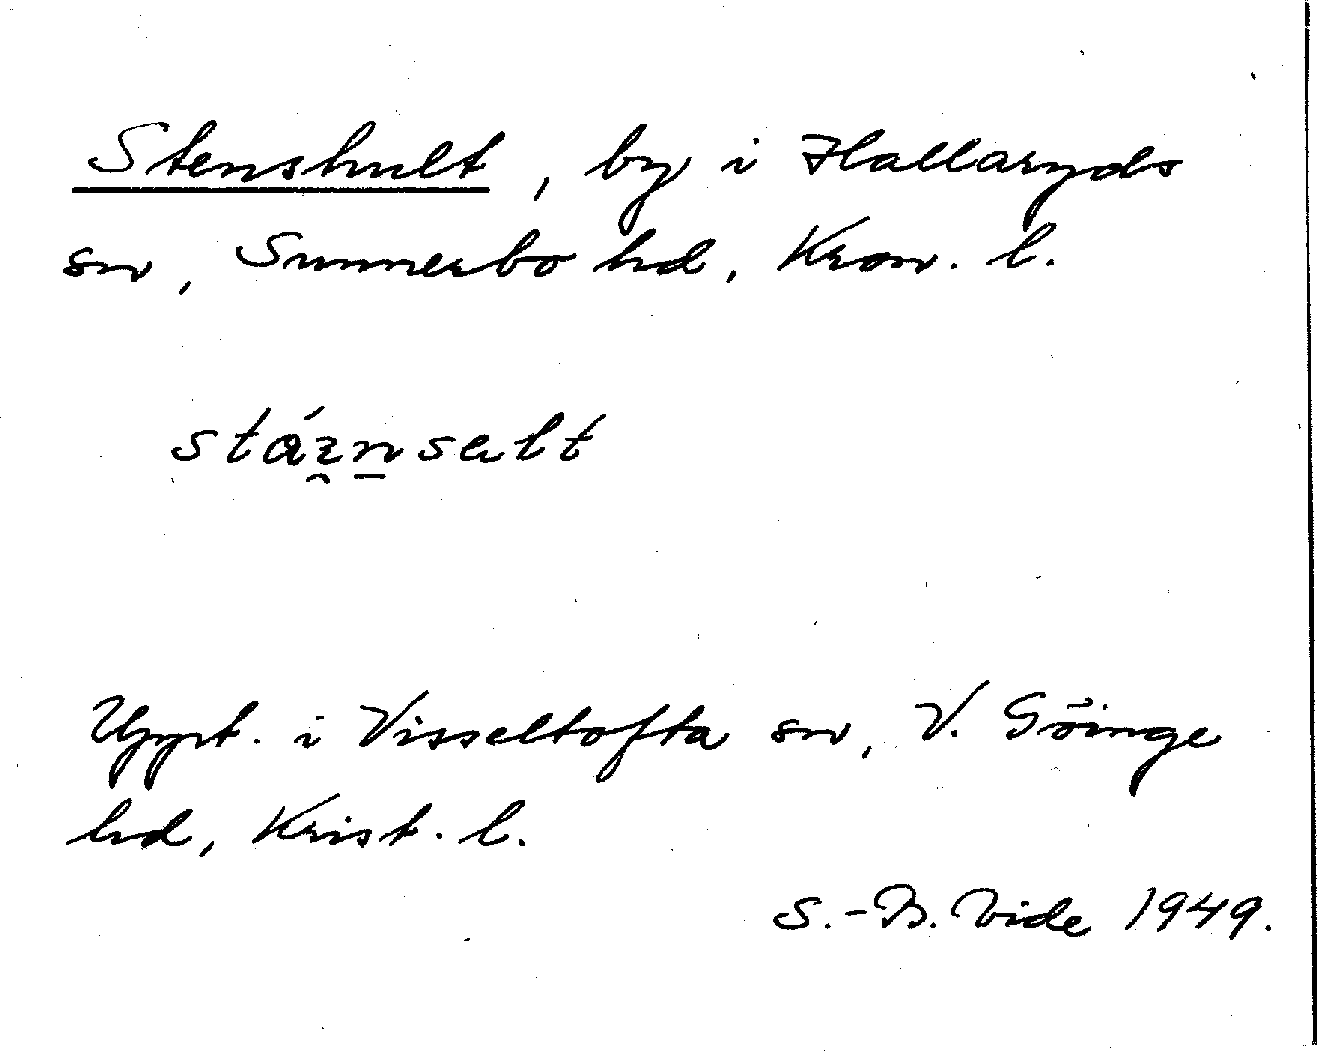 Stenshult, by i Hallaryds
sn, Sunnerbo hd, Kron. l.
Uppt. i Visseltofta sn, V. Göinge
hd, Krist. l.
S.-B. Vide 1949.